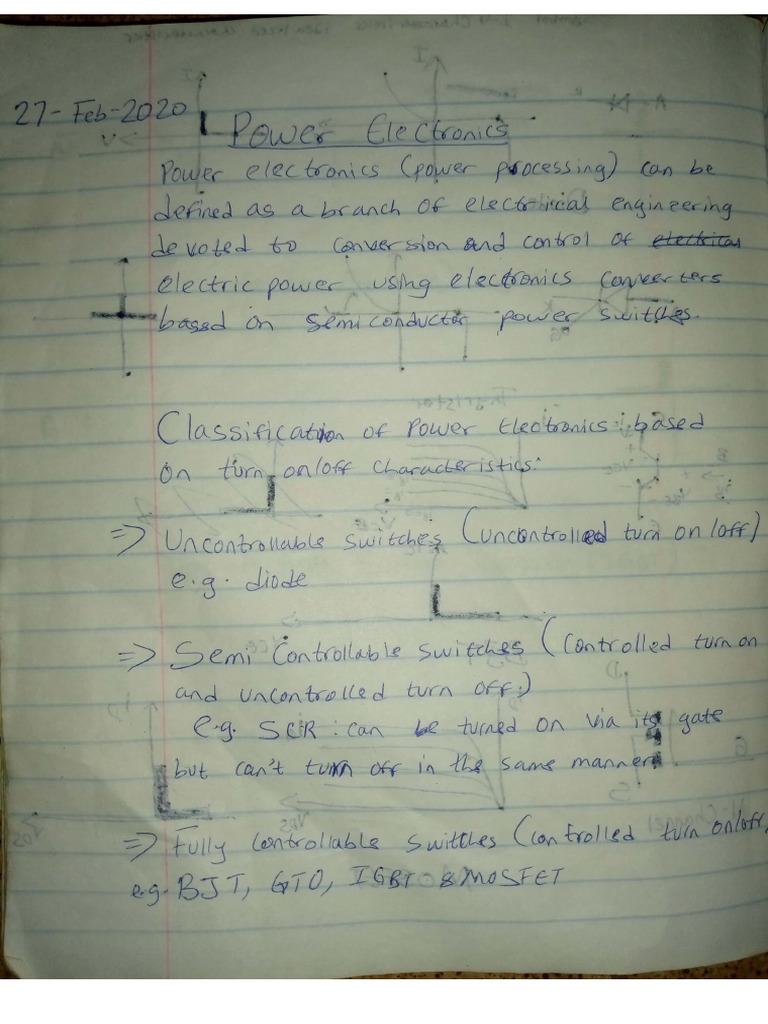 27-Feb-2020
Power Electronics
Power electronics (power processing) can be
defined as a branch of electrical engineering
devoted to conversion and control of electrical
electric power using electronics converters
based on semiconductor power switches.
Classification of Power Electronics: based
on turn on/off characteristics:
=> Uncontrollable switches (uncontrolled turn on/off)
e.g. diode
=> Semi Controllable switches (controlled turn on
and uncontrolled turn off)
e.g. SCR: can be turned on via its gate
but can't turn off in the same manner.
=> Fully controllable switches (controlled turn on/off,
e.g. BJT, GTO, IGBT & MOSFET